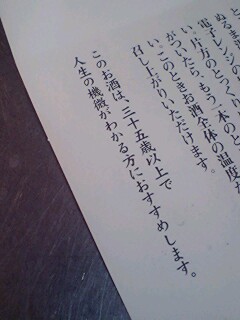 ぬるま
電子レンジの
い、片方のとっくり
がついたら、もう一本のとっ
い。このときお酒全体の温度が
召し上がりいただけます。
このお酒は、三十五歳以上で
人生の機微がわかる方におすすめします。